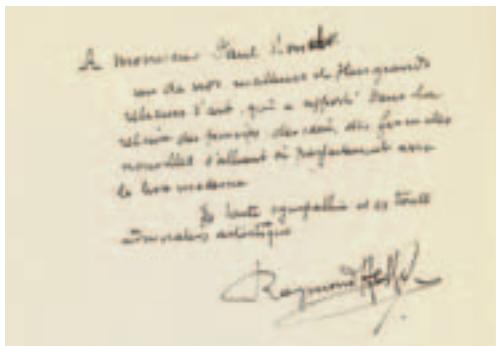 A monsieur Paul Bonet
un de nos meilleurs et plus grands
relieurs d'art qui a apporté dans la
reliure des principes, des idées, des formules
nouvelles s'alliant si parfaitement avec
le livre moderne
En toute sympathie et en toute
admiration artistique
Raymond